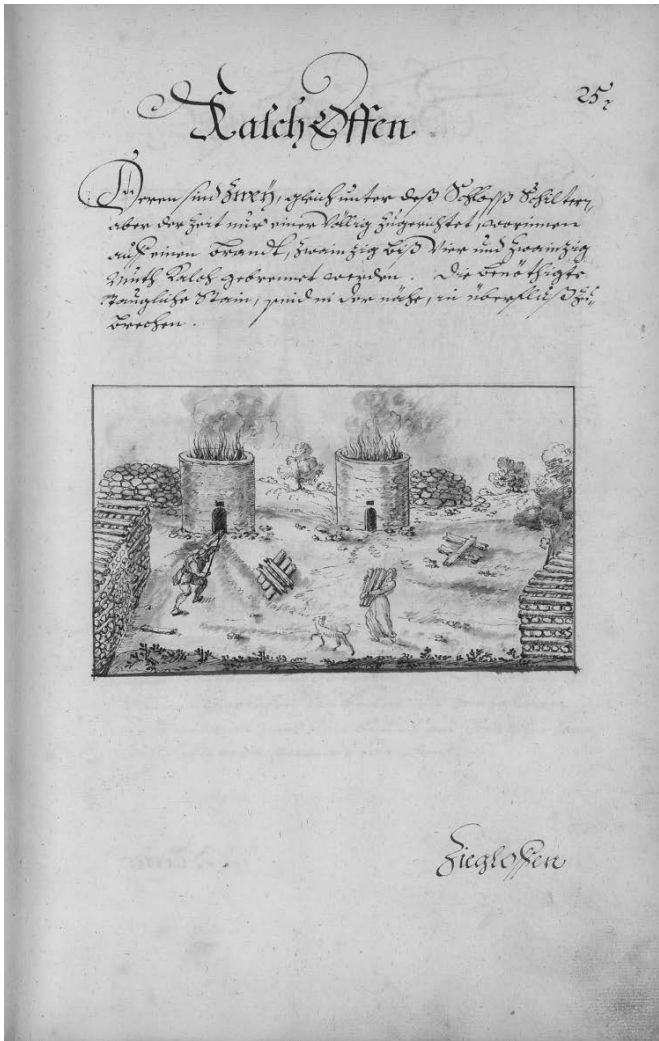 25
Kalch Offen.
Deren sind Zweÿ, gleich unter deß Schloß Schiltern,
aber der Zeit nur einer Völlig Zugerichtet, worinnen
auf einen Brandt, Zwainzig biß Vier und Zwainzig
Muth Kalch gebrennet werden. Die benöthigte
Taugliche Stain, sind in der nähe, in überfluß zu
brechen.
Ziegloffen